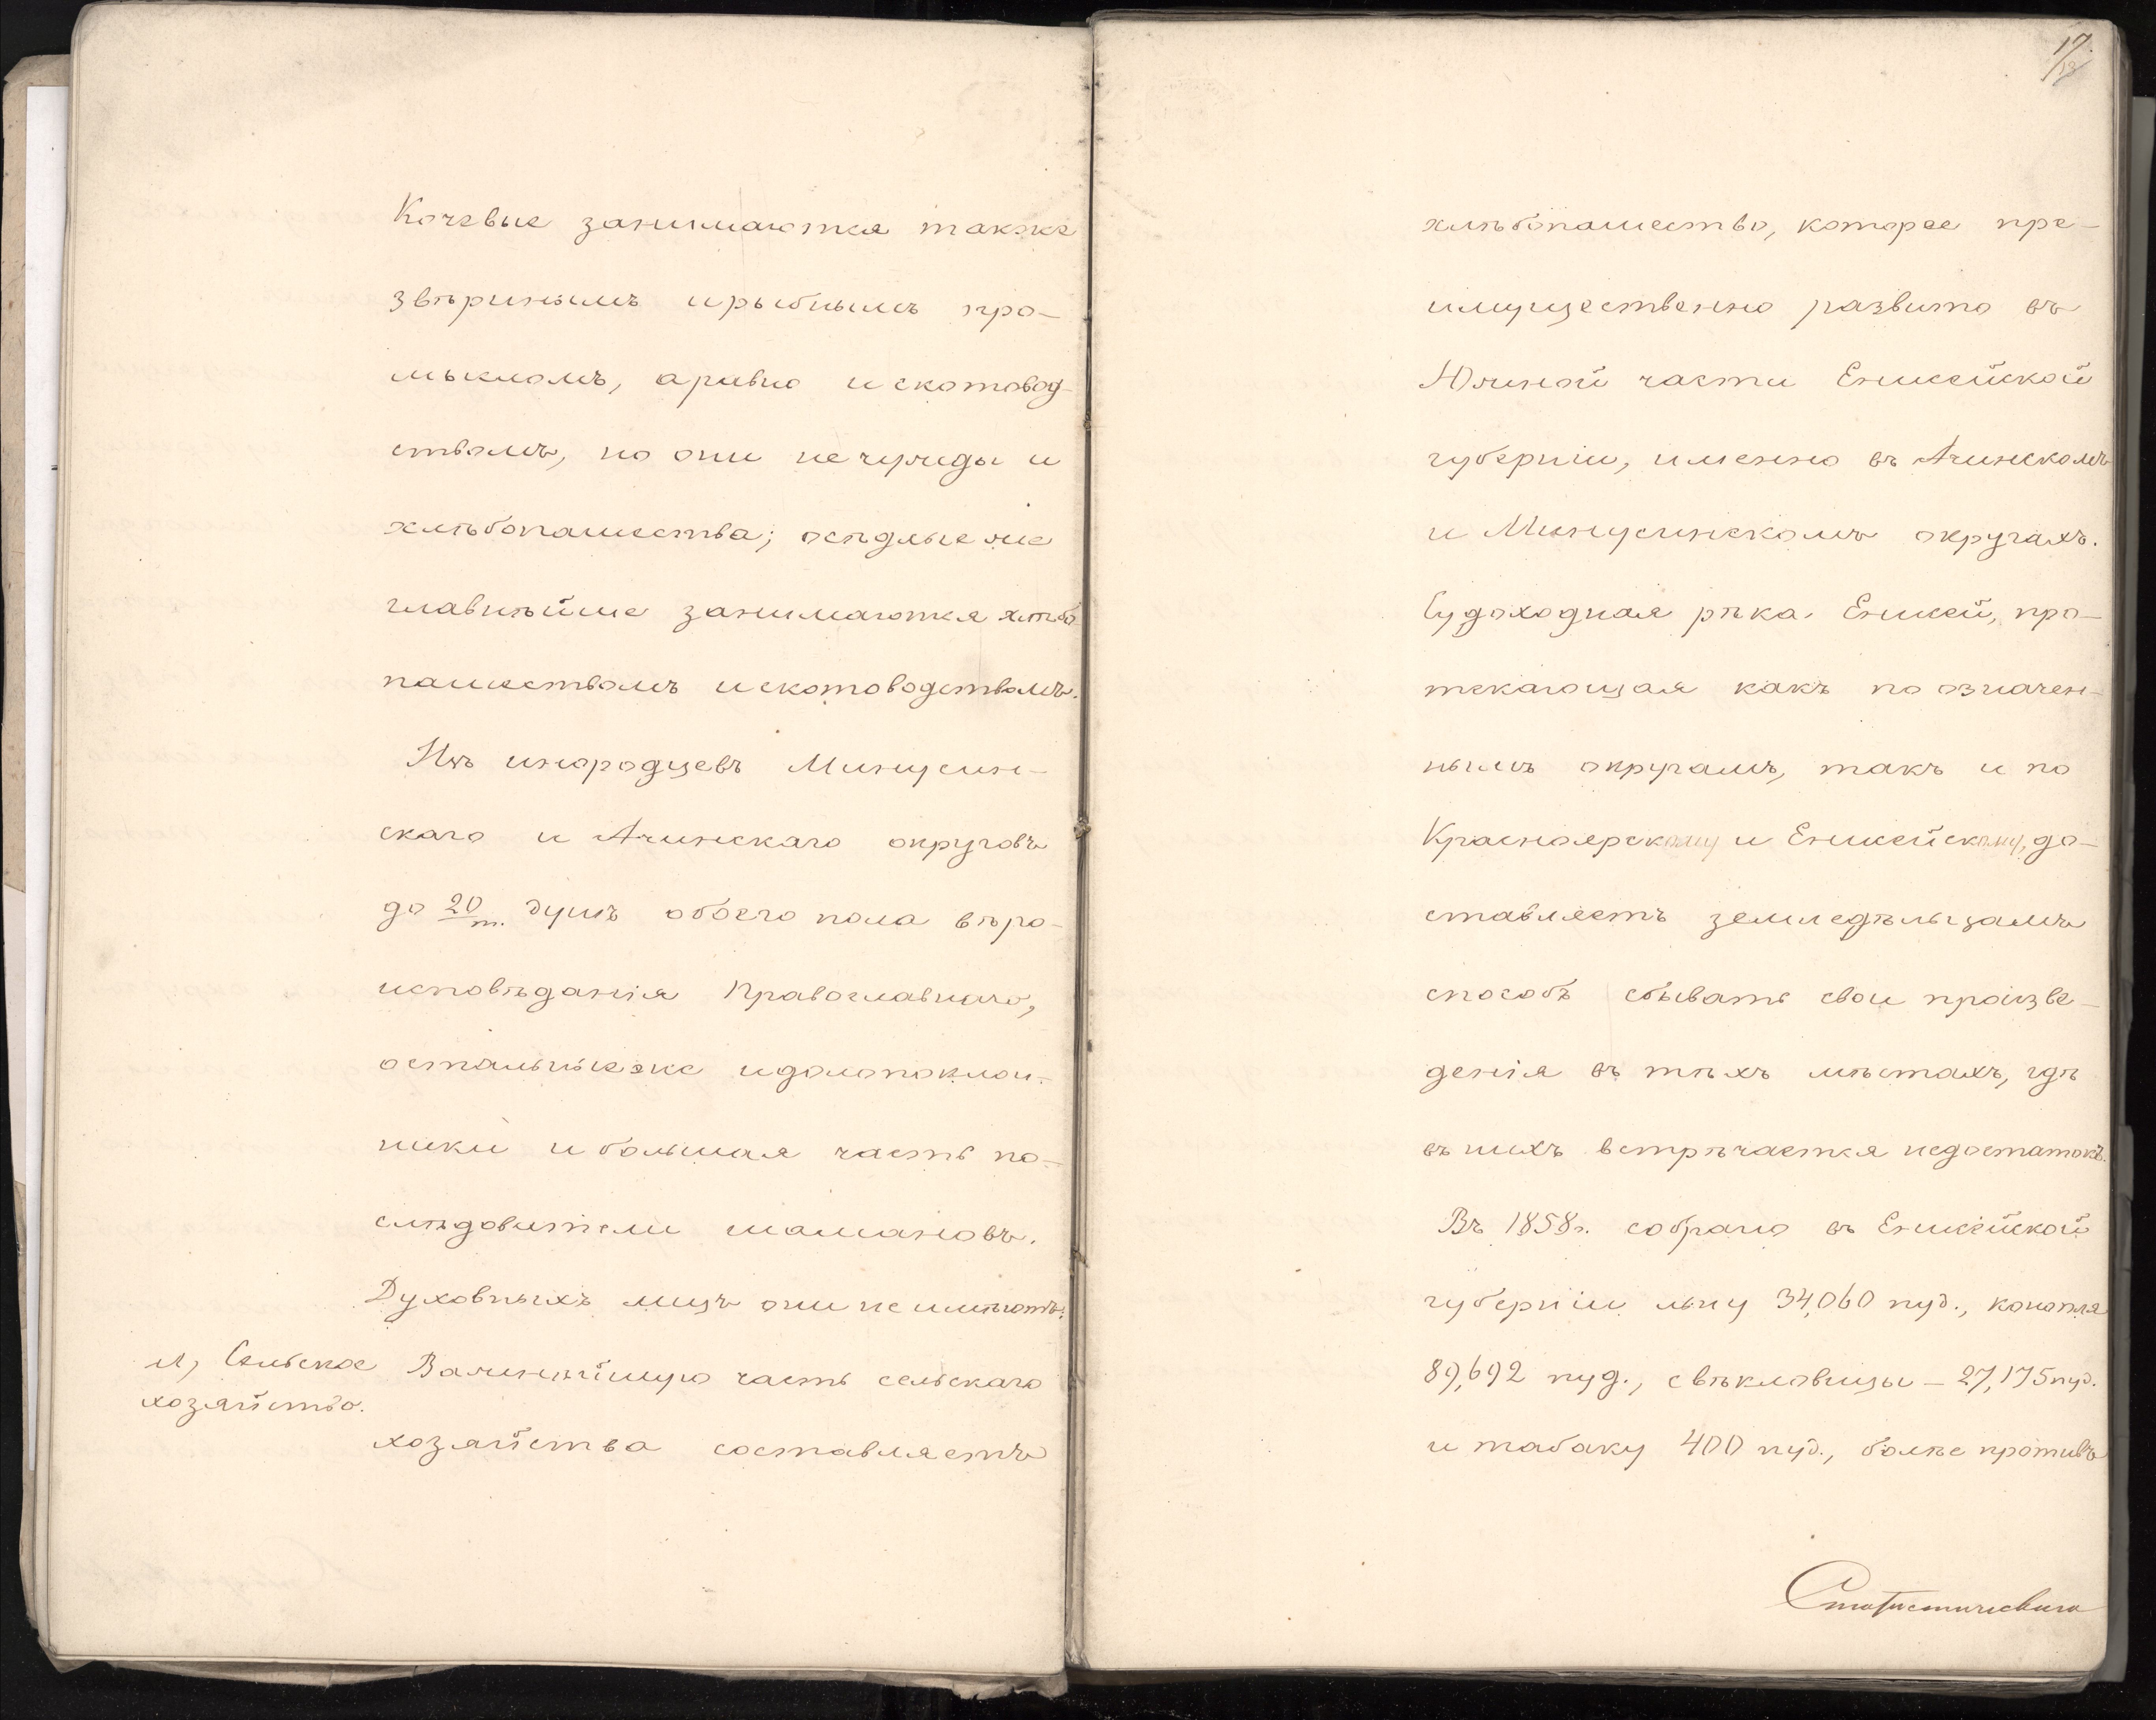 Кочевые занимаются также
звѣринымъ и рыбнымъ про-
мысломъ, а равно и скотовод-
ствомъ, но они не чужды и
хлѣбопашества; осѣдлые же
главнѣйше занимаются хлѣбо-
пашествомъ и скотоводствомъ.
Изъ инородцевъ Минусин-
скаго и Ачинскаго округовъ
до 20/т. душъ обоего пола вѣро-
исповѣданія Православнаго,
остальные же идолопоклон-
ники и большая часть по-
слѣдователи шамановъ.
Духовныхъ лицъ они не имѣютъ.
л, Сельское
хозяйство.
Важнѣйшую часть сельскаго
хозяйства составляетъ
17.
хлѣбопашество, которое пре-
имущественно развито въ
Южной части Енисейской
губерніи, именно въ Ачинскомъ
и Минусинскомъ округахъ.
Судоходная рѣка Енисей, про-
текающая какъ по означен-
нымъ округамъ, такъ и по
Красноярскому и Енисейскому, до-
ставляетъ земледѣльцамъ
способъ сбывать свои произве-
денія въ тѣхъ мѣстахъ, гдѣ
въ нихъ встрѣчается недостатокъ.
Въ 1858 г. собрано въ Енисейской
губерніи льну 34,060 пуд., конопля
89,692 пуд., свѣкловицы – 27,175 пуд.
и табаку 400 пуд., болѣе противъ